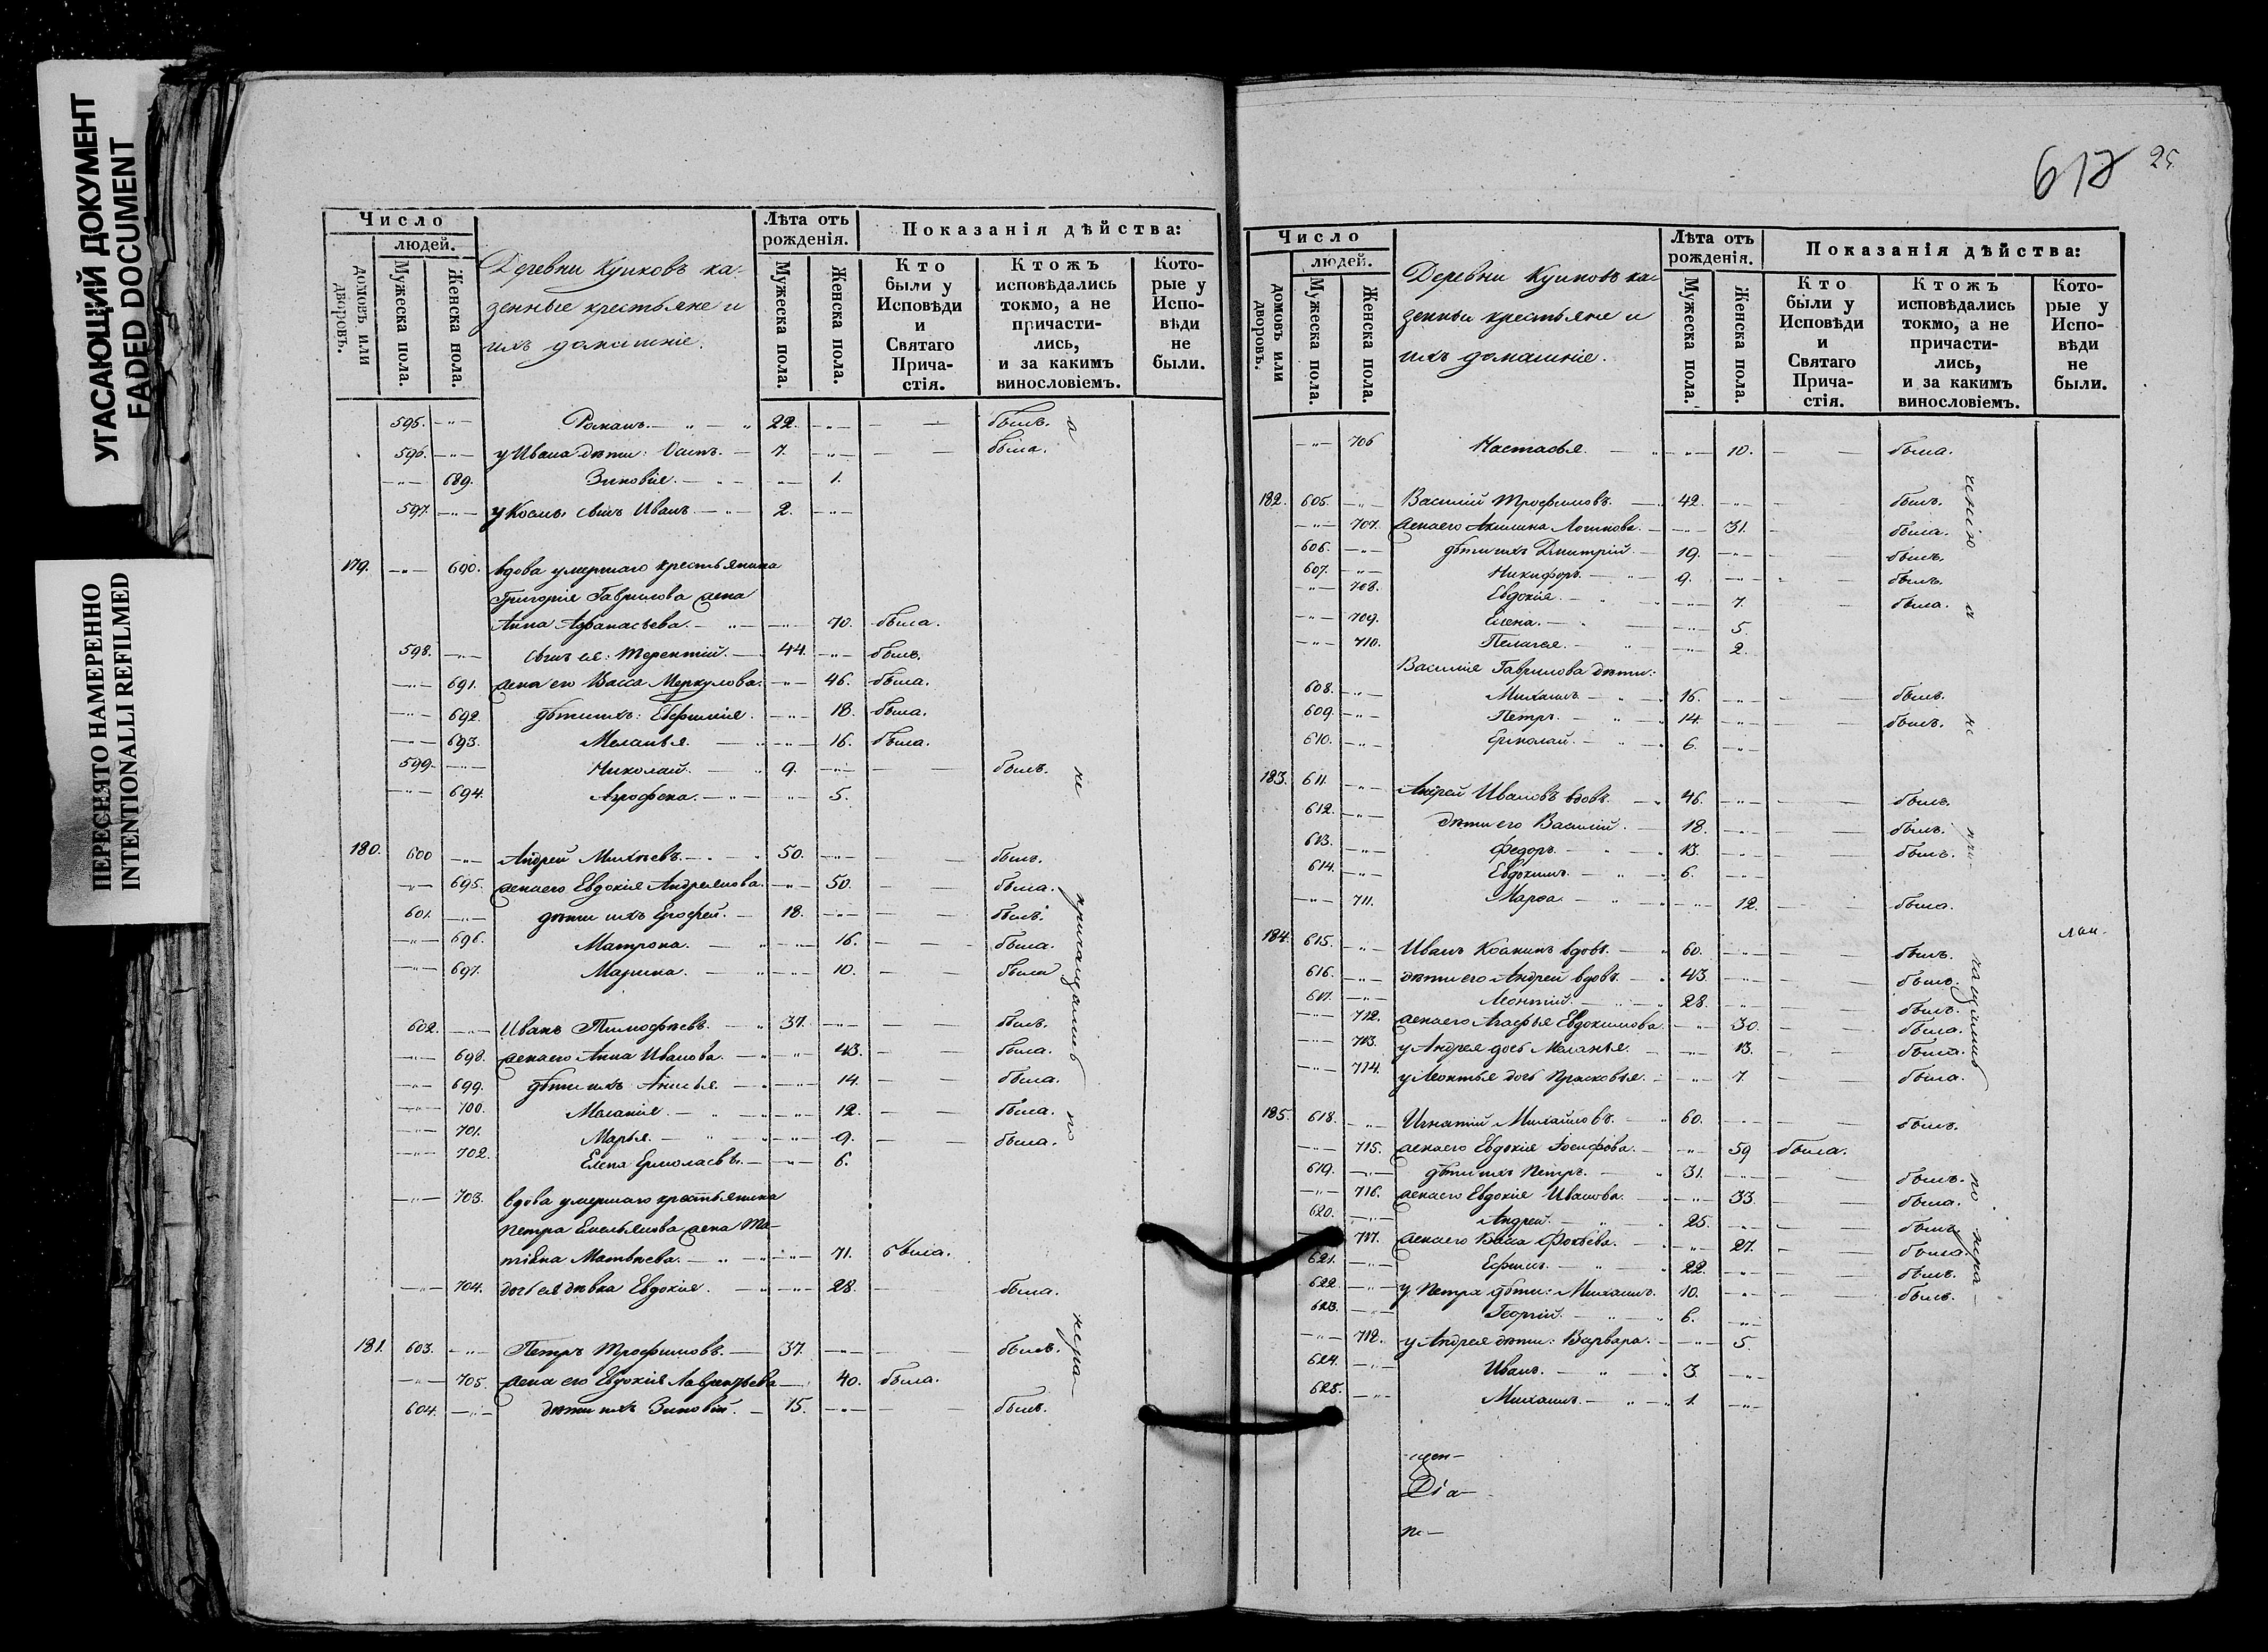 УГАСАЮЩИЙ ДОКУМЕНТ
FADED DOCUMENT
ПЕРЕСНЯТО НАМЕРЕННО
INTENTIONALLI REFILMED
Число
людей.
домовъ или дворовъ.
Мужеска пола.
Женска пола.
Деревни Куиковъ ка-
зенные крестьяне и
ихъ домашніе.
Лѣта отъ рожденія.
Мужеска пола.
Женска пола.
Показанія дѣйства:
Кто были у Исповѣди и Святаго Прича-стія.
Ктожъ исповѣдались токмо, а не причасти-лись, и за какимъ винословіемъ.
Кото-рые у Испо-вѣди не были.
595. —"— Романъ. 22. —"— былъ.
596. —"— у Ивана дѣти: Осипъ. 7. —"— была.
—"— 689. Зиновія. —"— 1.
597. —"— у Косьмы сынъ Иванъ 2. —"—
179. —"— 690. вдова умершаго крестьянина
Григорія Гаврилова жена
Анна Афанасьева. —"— 70. была.
598. —"— сынъ ея: Терентій. 44. —"— былъ.
—"— 691. жена его Васса Меркулова. —"— 46. была.
—"— 692. дѣти ихъ: Евфимія. —"— 18. была.
—"— 693. Меланья. —"— 16. была.
599. —"— Николай. 9. —"— былъ.
—"— 694. Агрофена. —"— 5.
180. 600 —"— Андрей Михѣевъ. 50. —"— былъ.
—"— 695. жена его Евдокія Андреянова. —"— 50. была.
601. —"— дѣти ихъ Ерофей. 18. —"— былъ.
—"— 696. Матрона. —"— 16. была.
—"— 697. Марина. —"— 10. была
602. —"— Иванъ Тимофѣевъ. 37. —"— былъ.
—"— 698. жена его Анна Иванова. —"— 43. была.
—"— 699. дѣти ихъ Анисья —"— 14. была.
—"— 700. Маланія. —"— 12. была.
—"— 701. Марья. —"— 9. была.
—"— 702. Елена Ермолаевъ. —"— 6.
—"— 703. вдова умершаго крестьянина
Петра Емельянова жена Ма-
тѣевна Матвѣева. —"— 71. была.
—"— 704. дочь ея дѣвка Евдокія. —"— 28. была.
181. 603. —"— Петръ Трофимовъ. 37. —"— былъ.
—"— 705. жена его Евдокія Лаврентьева —"— 40. была.
604. —"— дѣти ихъ Зиновій. 15. —"— былъ.
а
не
причащались
по
нера-
617 25.
Число
людей.
домовъ или дворовъ.
Мужеска пола.
Женска пола.
Деревни Куиковъ ка-
зенныи крестьяне и
ихъ домашніе.
Лѣта отъ рожденія.
Мужеска пола.
Женска пола.
Показанія дѣйства:
Кто были у Исповѣди и Святаго Прича-стія.
Ктожъ исповѣдались токмо, а не причасти-лись, и за какимъ винословіемъ.
Кото-рые у Испо-вѣди не были.
—"— 706 Настасья. —"— 10. была.
182. 605. —"— Василій Трофимовъ. 42. —"— былъ.
—"— 707. жена его Акилина Логинова. —"— 31. была.
606. —"— дѣти ихъ Дмитрій. 19. —"— былъ.
607. —"— Никифоръ. 9. —"— былъ.
—"— 708. Евдокія. —"— 7. была.
—"— 709. Елена. —"— 5.
—"— 710. Пелагея. —"— 2.
Василія Гаврилова дѣти:
608. —"— Михаилъ 16. —"— былъ.
609. —"— Петръ. 14. —"— былъ.
610. —"— Ермолай. 6. —"—
183. 611. —"— Андрей Ивановъ вдовъ. 46. —"— былъ.
612. —"— дѣти его Василій. 18. —"— былъ.
613. —"— Федоръ. 13. —"— былъ.
614. —"— Евдокимъ. 6. —"—
—"— 711. Марѳа. —"— 12. была.
184. 615. —"— Иванъ Козминъ вдовъ. 60. —"— былъ.
616. —"— дѣти его Андрей вдовъ. 43. —"— былъ.
617. —"— Леонтій. 28. —"— былъ.
—"— 712. жена его Агафья Евдокимова —"— 30. была.
—"— 713. у Андрея дочь Меланья. —"— 13. была.
—"— 714. у Леонтья дочь Прасковья. —"— 7. была.
185. 618. —"— Игнатій Михайловъ. 60. —"— былъ.
—"— 715. жена его Евдокія Іосифова. —"— 59 была.
619. —"— дѣти ихъ Петръ. 31. —"— былъ.
—"— 716. жена его Евдокія Иванова. —"— 33. была.
620. —"— Андрей. 25. —"— былъ.
—"— 717. жена его Васса Фокѣева. —"— 27. была.
621. —"— Ефимъ. 22. —"— былъ.
622. —"— у Петра дѣти: Михаилъ. 10. —"— былъ.
623. —"— Георгій. 6. —"—
—"— 718. у Андрея дѣти: Варвара. —"— 5.
624. —"— Иванъ. 3. —"—
625. —"— Михаилъ. 1. —"—
ченію
а
не
при-
чащались
по
нера-
щен-
Діа-